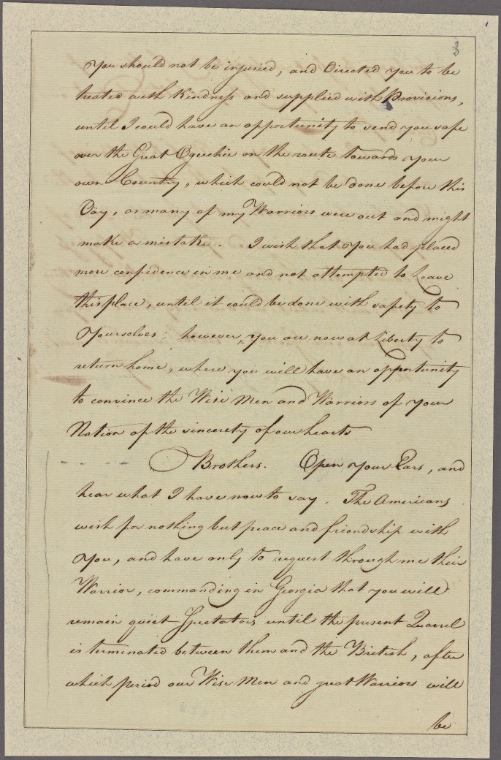 3
You should not be injured, and directed you to be
treated with Kindness and supplied with Provisions,
until I could have an opportunity to send you safe
over the Great Ogeechie on the route towards your
own Country, which could not be done before this
Day, as many of my Warriors were out and might
make a mistake. I wish that you had placed
more confidence in me and not attempted to Leave
this place, until it could be done with safety to
Yourselves; however, you are now at Liberty to
return home, where you will have an opportunity
to convince the Wise Men and Warriors of your
Nation of the sincerety of our hearts
Brothers. Open your Ears, and
hear what I have now to say. The Americans
wish for nothing but peace and friendship with
You, and have only to request through me their
Warrior, commanding in Georgia that you will
remain quiet Spectators until the present Quarrel
is terminated between them and the British, after
which period our Wise Men and great Warriors will
be